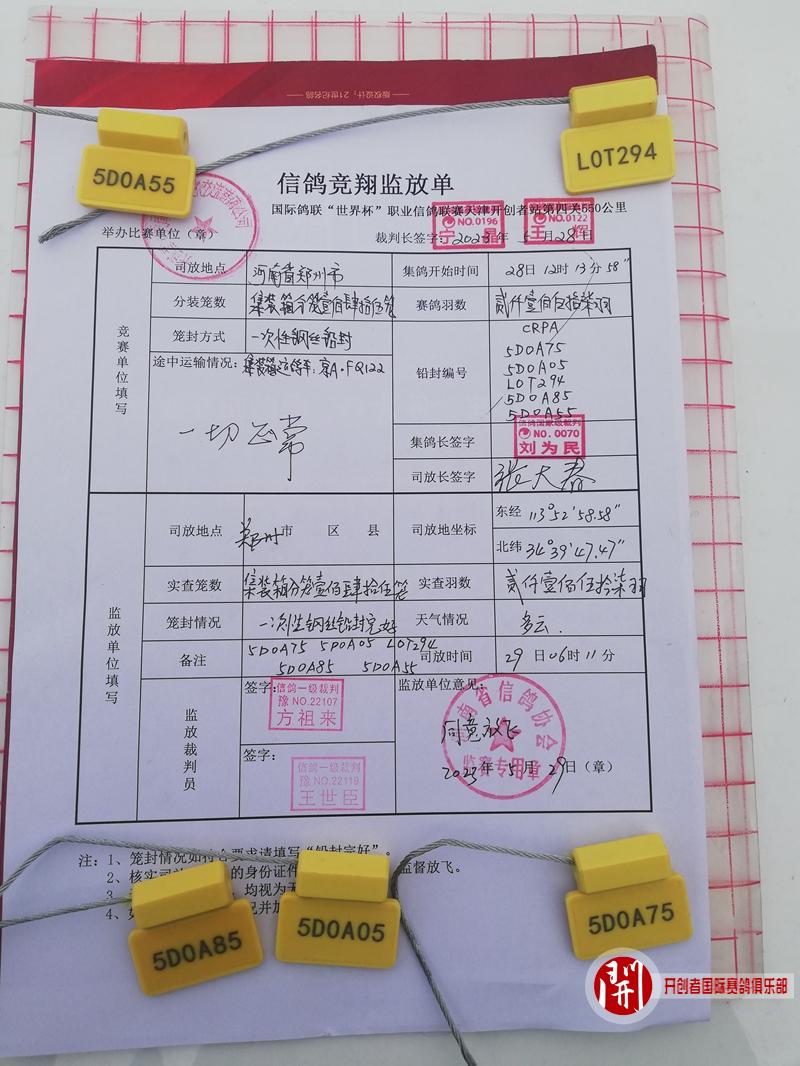 ——版权设计：21世纪名鸽——
5D0A55
LOT294
信鸽竞翔监放单
国际鸽联“世界杯”职业信鸽联赛天津开创者站第四关550公里
举办比赛单位（章）
裁判长签字：2023年5月28日
NO.0196
NO.0122
王辉
竞赛单位填写
司放地点 河南省郑州市
集鸽开始时间 28日12时13分58"
分装笼数 集装箱分笼壹佰肆拾伍笼
赛鸽羽数 贰仟壹佰伍拾柒羽
笼封方式 一次性钢丝铅封
铅封编号
CRPA
5D0A75
5D0A05
LOT294
5D0A85
5D0A55
途中运输情况：集装箱运转车：京A·FQ122
一切正常
集鸽长签字
信鸽国家级裁判
NO.0070
刘为民
司放长签字 张大春
监放单位填写
司放地点 郑州市 区 县
司放地坐标
东经 113°52'58.58"
北纬 34°39'47.47"
实查笼数 集装箱分笼壹佰肆拾伍笼
实查羽数 贰仟壹佰伍拾柒羽
笼封情况 一次性钢丝铅封完好
天气情况 多云.
备注 5D0A75 5D0A05 LOT294
5D0A85 5D0A55
司放时间 29日06时11分
监放裁判员
签字：
信鸽一级裁判
豫NO.22107
方祖来
签字：
信鸽一级裁判
豫NO.22119
王世臣
监放单位意见：
同意放飞
河南省信鸽协会
监赛专用章
2023年5月29日（章）
注：1、笼封情况如符合要求请填写“铅封完好”。
2、核实司放 的身份证件 监督放飞。
3、 均视为无
4、如 况并加
5D0A85
5D0A05
5D0A75
開
开创者国际赛鸽俱乐部